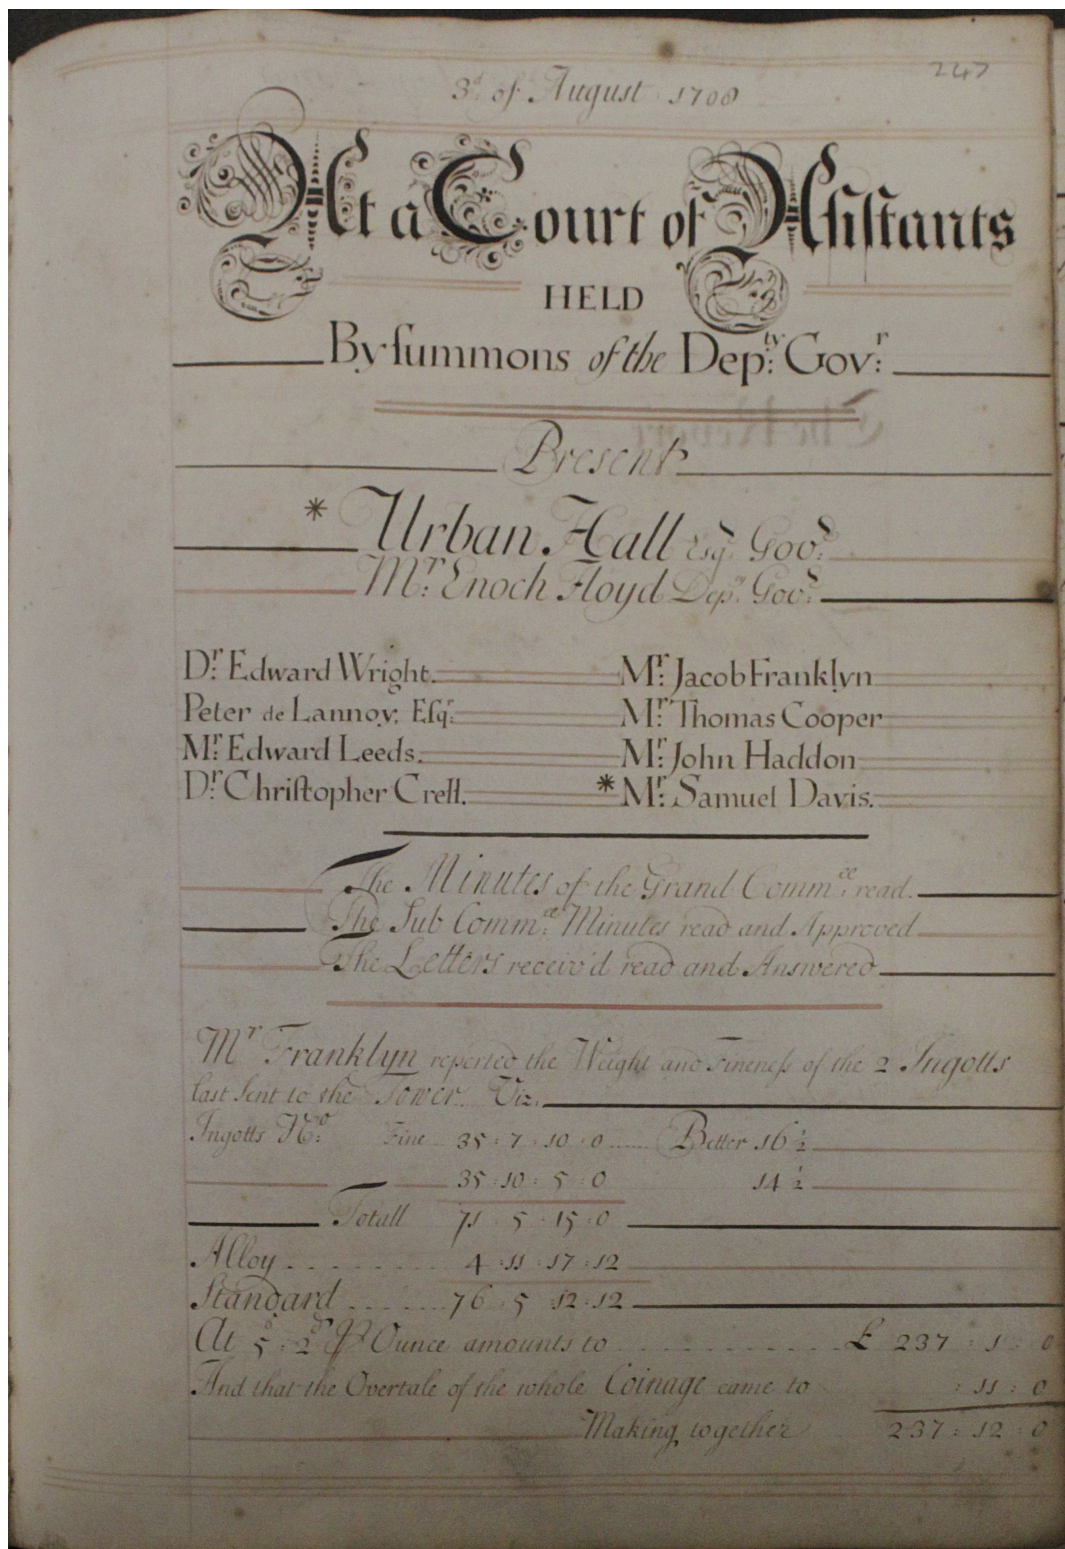 247
3d. of August 1708
At a Court of Aſsiſtants
HELD
By ſummons of the Depty: Govr:
Present
* Urban Hall Esqr. Govr:
Mr: Enoch Floyd Depty. Govr:
Dr: Edward Wright. Mr: Jacob Franklyn
Peter de Lannoy, Eſqr: Mr: Thomas Cooper
Mr: Edward Leeds. Mr: John Haddon
Dr: Chriſtopher Crell. * Mr: Samuel Davis.
The Minutes of the Grand Commee: read.
The Sub Commee: Minutes read and Approved
The Letters receiv'd read and Answered.
Mr Franklyn reported the Weight and Fineneſs of the 2 Ingotts
last sent to the Tower. Viz.
Ingotts No: Fine 35 : 7 : 10 : 0 ...... Better 16 ½
35 : 10 : 5 : 0 14 ½
Totall 71 : 5 : 15 : 0
Alloy . . . . . . . . . 4 : 11 : 17 : 12
Standard . . . . . . . 76 : 5 12 : 12
At 5s : 2d ⅌ Ounce amounts to . . . . . . . . . . . . £ 237 : 1 : 0
And that the Overtale of the whole Coinage came to : 11 : 0
Making together 237 : 12 : 0